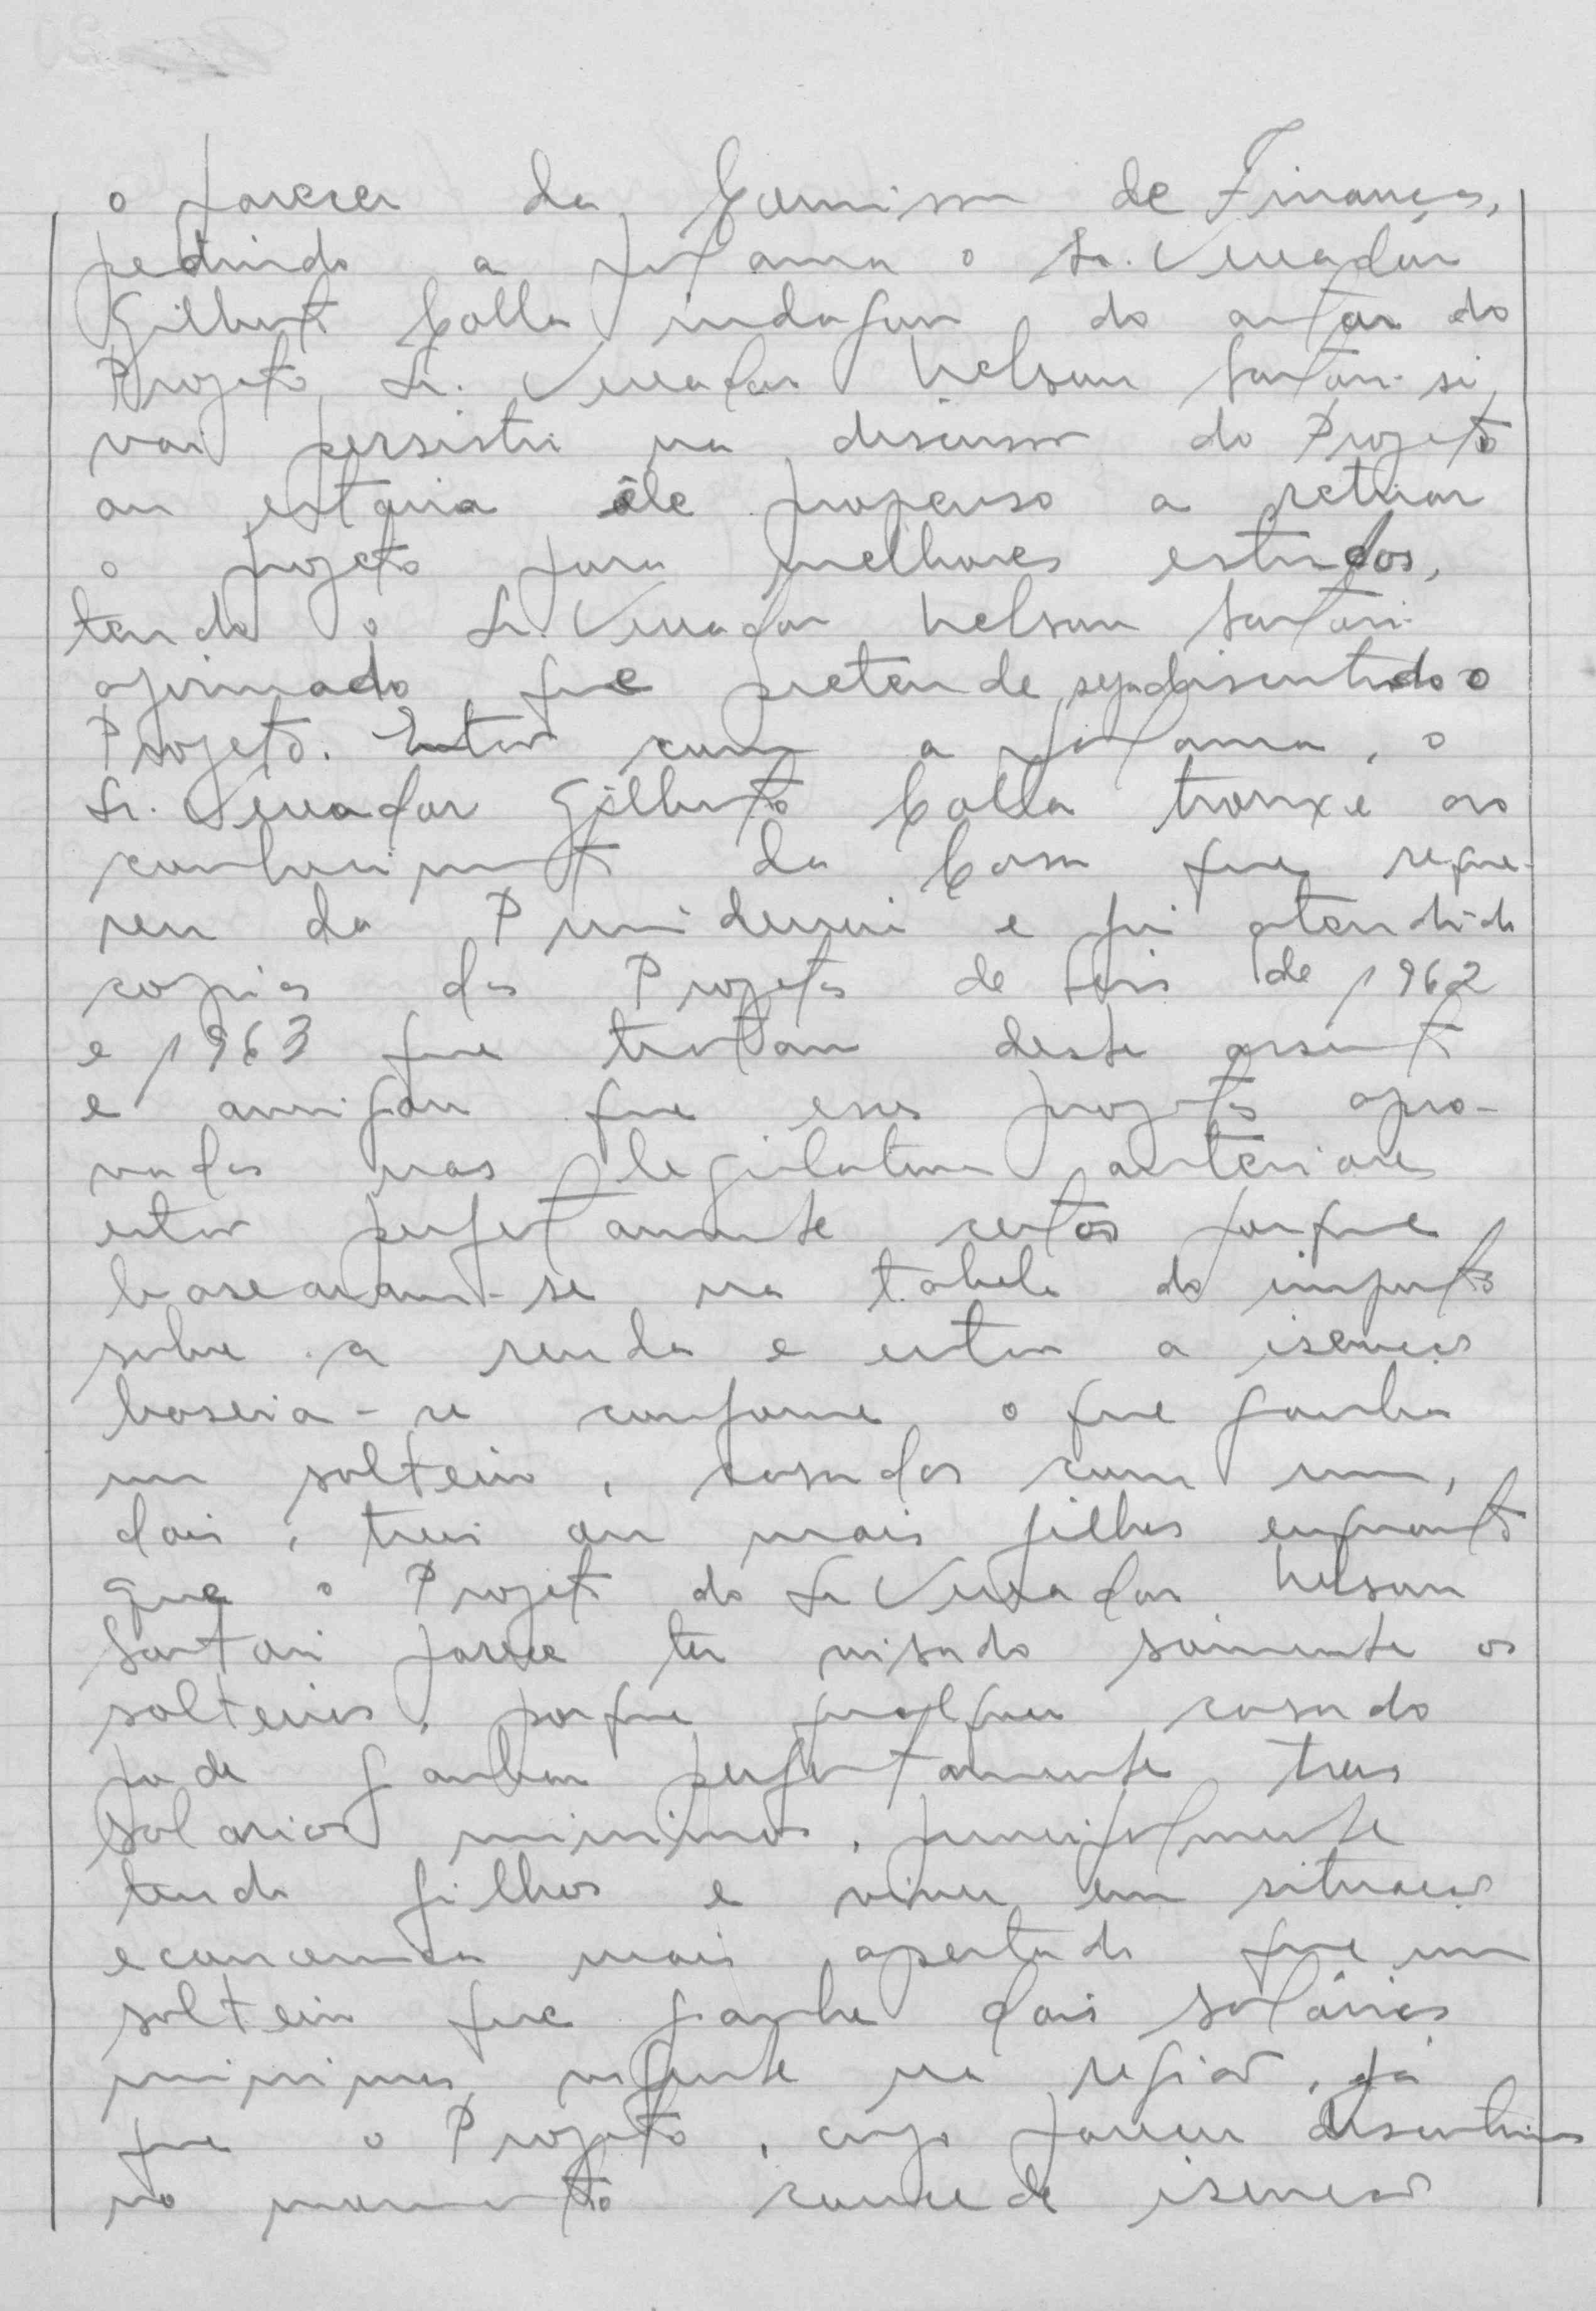 o parecer da Comissão de Finanças,
pedindo a palavra o Sr. Vereador
Gilberto Calla indagou do autor do
Projeto, Sr. Vereador Nelson Sartori si
vai persistir na discussão do Projeto
ou estaria êle propenso a retirar
o projeto para melhores estudos,
tendo o Sr. Vereador Nelson Sartori
afirmado que pretende seja discutido o
Projeto. Então com a palavra, o
Sr. Vereador Gilberto Calla trouxe ao
conhecimento da Casa que reque-
reu da Presidencia e foi atendido
copias dos Projetos de Leis de 1962
e 1963 que tratam deste assunto
e que esses projetos apro-
vados nas legislaturas anteriores
estão perfeitamente certos porque
basearam-se na tabela do imposto
sobre a renda e então a isenção
baseia-se conforme o que ganha
um solteiro, casados com um,
dois, tres ou mais filhos enquanto
que o Projeto do Sr Vereador Nelson
Sartori parece ter visado somente os
solteiros, porque qualquer casado
pode ganhar perfeitamente tres
salarios minimos, principalmente
tendo filhos e viver em situação
economica mais apertada que um
solteiro que ganhe dois salários
minimos, vigente na região, já
que o Projeto, cujo parecer discutimos
no momento concede isenção